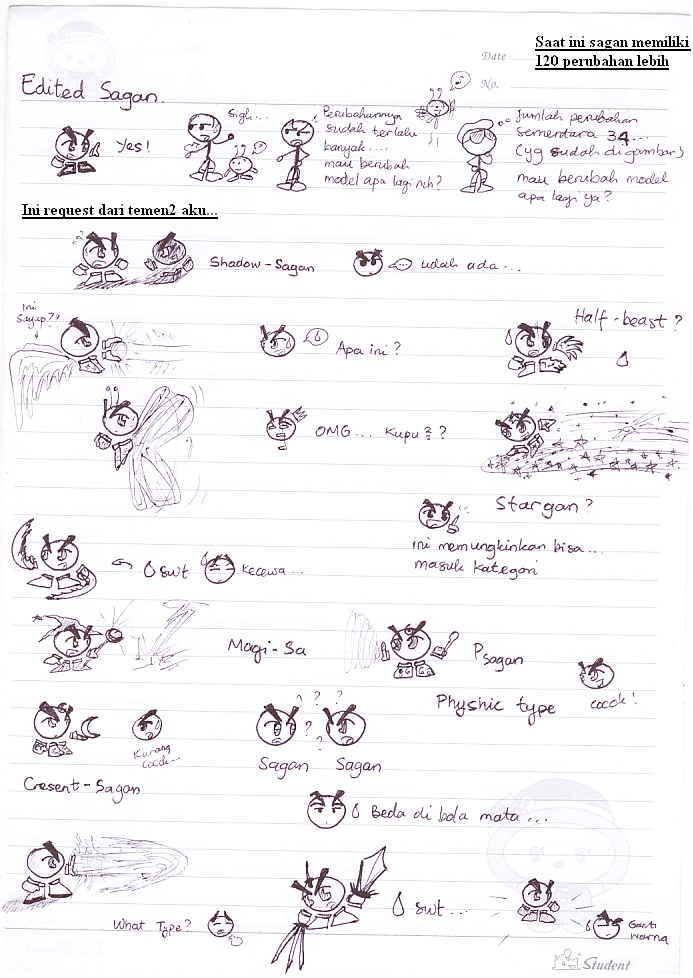 Saat ini sagan memiliki
120 perubahan lebih
Date
No.
Edited Sagan.
Yes!
Sigh...
Perubahannya
sudah terlalu
banyak....
mau berubah
model apa lagi nih?
Jumlah perubahan
sementara 34...
(yg sudah digambar)
mau berubah model
apa lagi ya?
Ini request dari temen2 aku...
Shadow-Sagan
udah ada...
Ini
Sayap??
Apa ini?
Half-beast?
OMG... Kupu2?
Stargan?
ini memungkinkan bisa...
masuk kategori
swt
kecewa...
Magi-Sa
Psagan
Physhic type
cocok!
Kurang
cocok...
Cresent-Sagan
? ? ? ? ?
Sagan Sagan
Beda di bola mata...
What Type?
swt...
Ganti
warna
Student